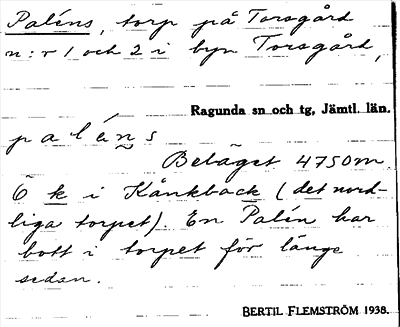 Paléns, torp på Torsgård
n:r 1 och 2 i byn Torsgård,
Ragunda sn och tg, Jämtl. län.
paléns
Beläget 4750m
Ö k i Kånkback (det nord-
liga torpet). En Palén har
bott i torpet för länge
sedan.
BERTIL FLEMSTRÖM 1938.